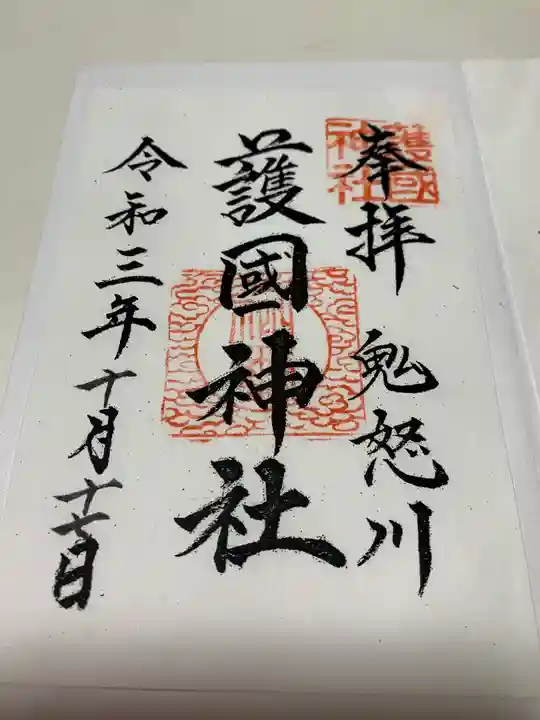 奉拝 鬼怒川
護國神社
護國神社
令和三年十月十七日